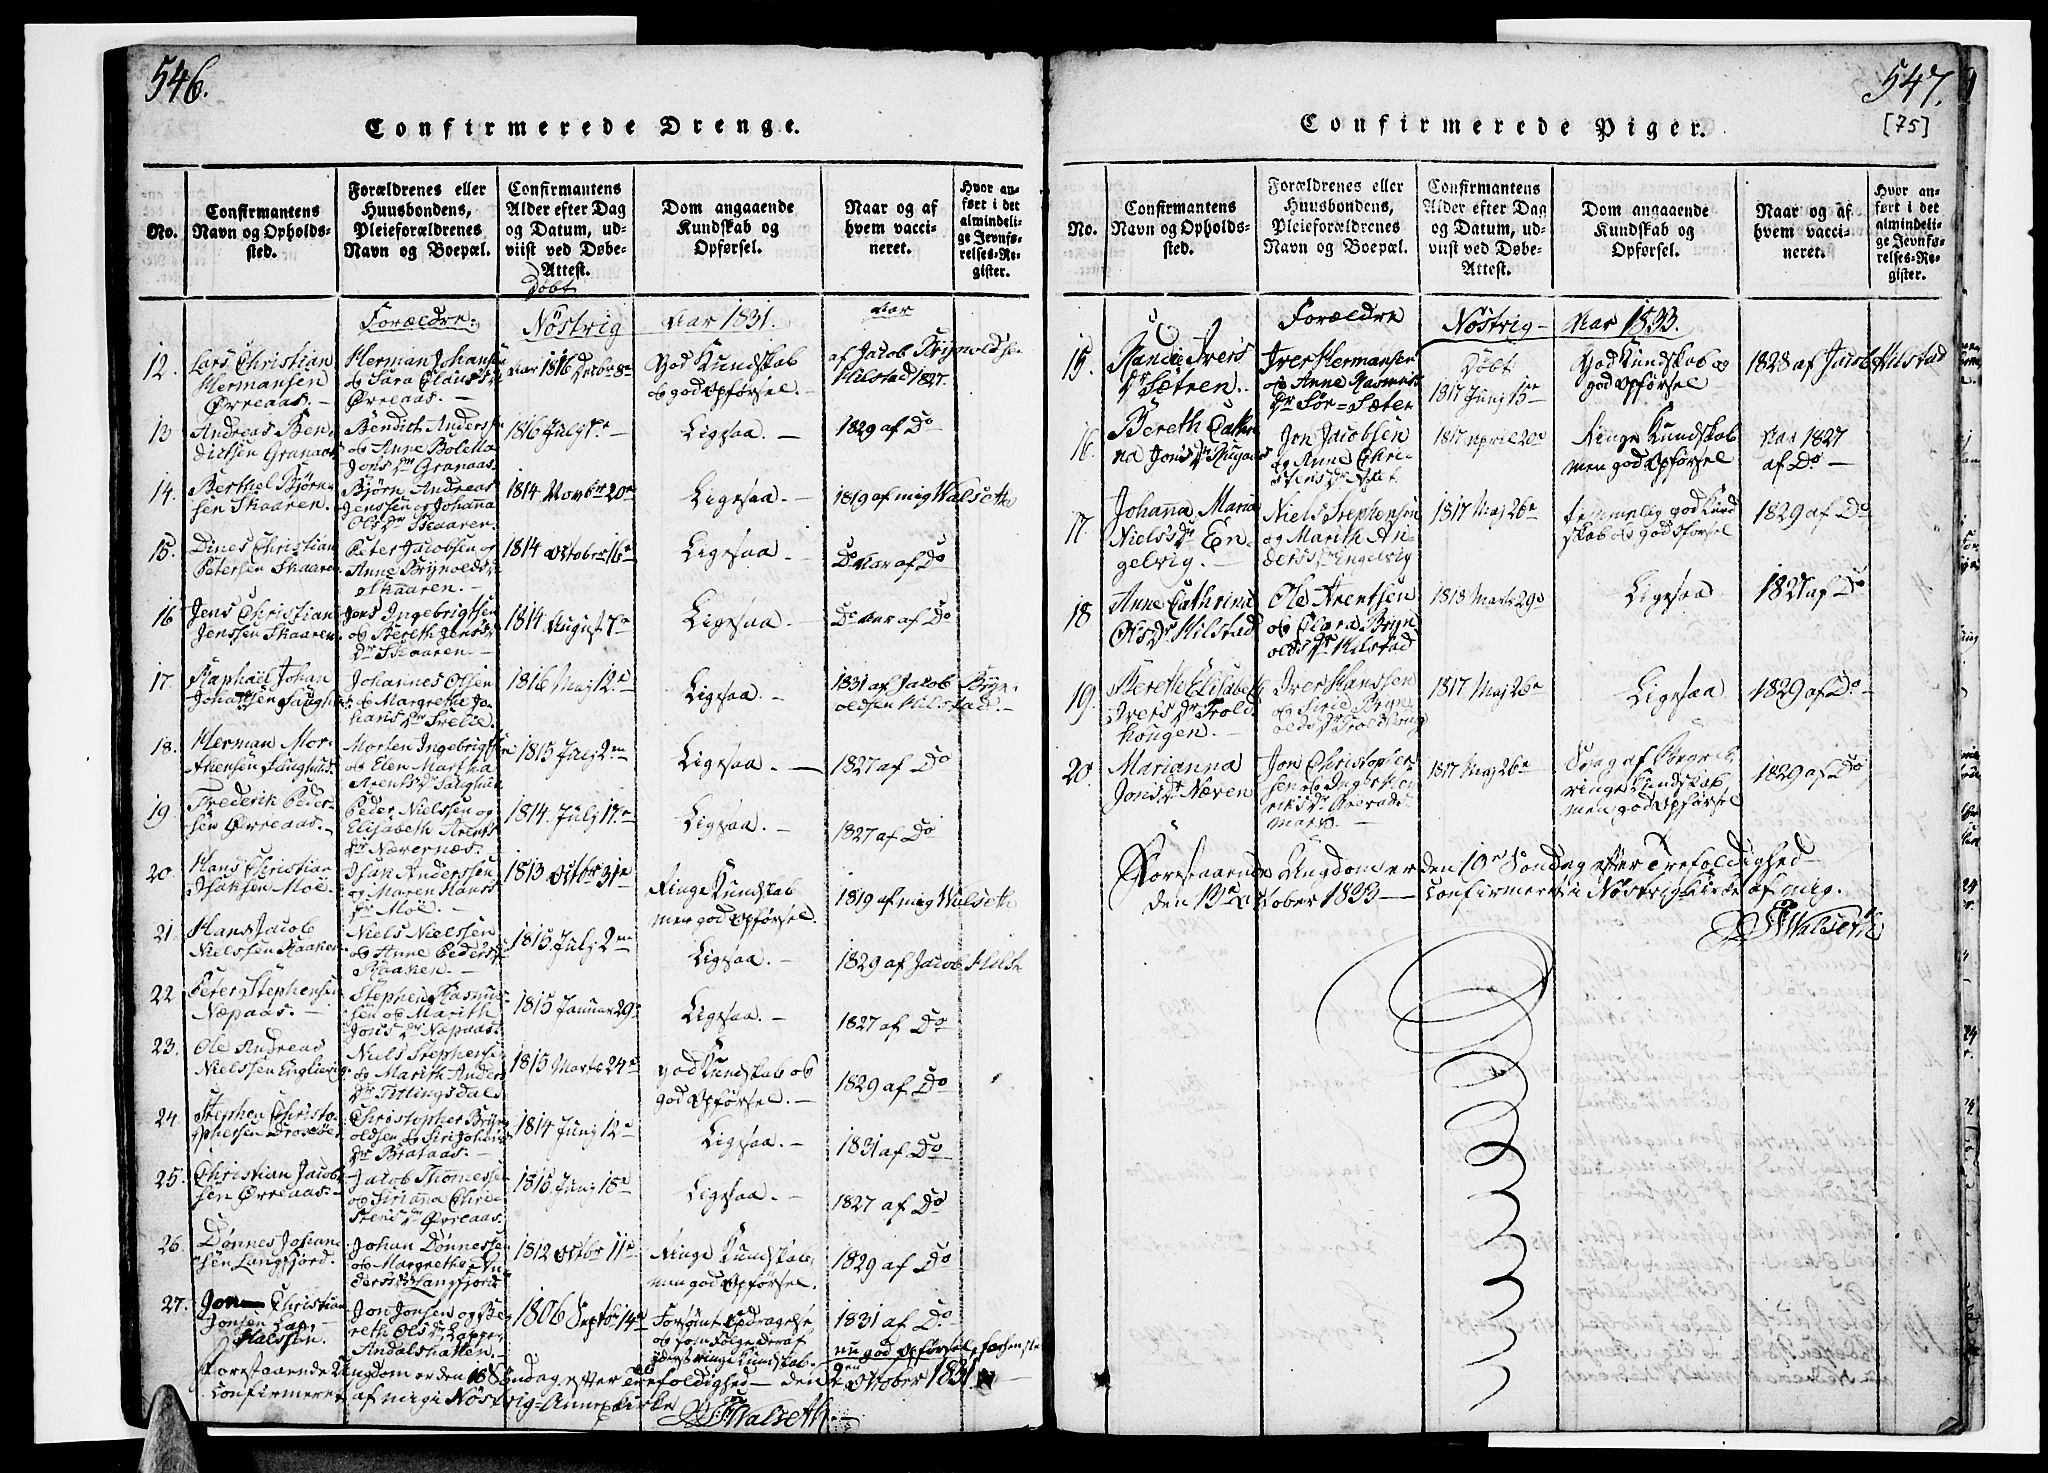 546.
Confirmerede Drenge.
No.
Confirmantens Navn og Opholdssted.
Forældrenes eller Huusbondens, Pleieforældrenes Navn og Boepæl.
Confirmantens Alder efter Dag og Datum, udviist ved Døbe-Attest.
Dom angaaende Kundskab og Opførsel.
Naar og af hvem vaccineret.
Hvor anført i det almindelige Jevnførelses-Register.
Døbt
Forældre: Nöstvig Aar 1831. Aar
12. Lars Christian Hermansen Örreaas. Herman Johansen og Sara Clausdr Örreaas. Aar 1816 Decbr 8de God Kundskab og god Opförsel. af Jacob Brijnoldsen Hilstad 1827.
13 Andreas Bendictsen Granaas Bendich Anderssen og Anne Boletta Jonsdr Granaas. 1816 July 7de Ligesaa. 1829 af Do
14. Berthel Björnsen Skaaren. Björn Andreas Jenssen og Johanna Olsdr Skaaren. 1814 Novbr 20de Ligesaa. 1819 af mig Walseth
15. Dines Christian Petersen Skaaren Peter Jacobsen og Anne Brijnoldsdr Skaaren. 1814 October 16de Ligesaa. Do Aar af Do
16 Jens Christian Jenssen Skaaren. Jens Ingebrigtsen og Bereth Jensdr Skaaren. 1814 August 7de Ligesaa. Do Aar af Do
17. Raphäel Johan Johanssen Haughus Johannes Olsen og Margretha Johansdr Trelie. 1816 Maj 12te Ligesaa. 1831 af Jacob Brijnoldsen Hilstad.
18. Herman Mortensen Haughus. Morten Ingebrigtsen og Elen Martha Arentsdr Haughus 1815 July 2den Ligesaa. 1827 af Do
19 Frederik Pedersen Örreaas. Peder Nielssen og Elisabeth Arentsdr Nævernæs. 1814. July 17de Ligesaa. 1827 af Do
20 Hans Christian Isaksen Möe. Isak Anderssen og Maren Hansdr Möe. 1813 Octbr 31te Ringe Kundskab men god Opförsel. 1819 af mig Walseth
21. Hans Jacob Nielssen Raaken Niels Nielssen og Anne Pedersdr Raaken. 1815. July 2den Ligesaa. 1829 af Jacob Hilst
22 Peter Stephensen Næpaas. Stephen Rasmussen og Marith Jonsdr Næpaas. 1815 Januar 29de Ligesaa. 1827 af Do
23. Ole Andreas Nielssen Niels Stephensen og Marith Andersdr Tittingsdals 1815 Marts 24de God Kundskab og god Opförsel. 1829 af Do
24 Stephen Christophersen Christopher Brijnoldsen og Siri Johansdr Brataas. 1814 Juny 12te Ligesaa. 1831 af Do
25. Christian Jacobsen Örreaas. Jacob Thomessen og Sirianna Christensdr Örreaas. 1815 Juny 18de Ligesaa. 1827 af Do
26. Dönnes Johansen Langfjord. Johan Dönnessen og Margrethe Andersdr Langfjord 1812 Octbr 11te Ringe Kundskab, men god Opförsel. 1829 af Do
27. Jon Christian Jonsen Lap, Halssen. Jon Jonsen og Bereth Olsdr Lapper Andalshatten. 1806 Septbr 14de Forsömt Opdragelse og som Fölge deraf yderst ringe Kundskab. 1831 af Do nu god Opförsel,
Forestaaende Ungdom er den 18 Söndag efter Trefoldighed – den 2den October 1831
confirmeret af mig i Nöstvig Annexkirke
Walseth.
547.
[75]
Confirmerede Piger.
No.
Confirmantens Navn og Opholdssted.
Forældrenes eller Huusbondens, Pleieforældrenes Navn og Boepæl.
Confirmantens Alder efter Dag og Datum, udviist ved Døbe-Attest.
Dom angaaende Kundskab og Opførsel.
Naar og af hvem vaccineret.
Hvor anført i det almindelige Jevnførelses-Register.
Forældre Nöstvig – Aar 1833.
15. Randie Ivers Dr Sætren. Iver Hermansen og Anne Rasmus Dr Sör-Sæter Döbt 1817 Juny 15de God Kundskab og god Opförsel 1828 af Jacob Hilstad
16. Bereth Cathrina Jonsdr Jon Jacobsen og Anne Christensdr 1817 April 20de Ringe Kundskab men god Opförsel Aar 1827 af Do
17. Johanna Maria Nielsdr Engelvig. Niels Stephensen og Marith Andersdr Engelvig 1817 Maj 26de temmelig god Kundskab og god Opförsel 1829 af Do
18 Anne Cathrina Olsdr Hilstad Ole Arentsen og Clara Brijnoldsdr Hilstad 1818 Marts 29de Ligesaa 1827 af Do
19. Berette Elisabeth Iversdr Troldhougen. Iver Hanssen og Sirie Brijnoldsdr Troldhoug 1817 Maj 26de Ligesaa 1829 af Do
20 Marianna Jonsdr Næven Jon Christophersen og Inger Henriksdr 1817 Maj 26de Svag af Begreb, ringe Kundskab men god Opförsel 1829 af Do
Forestaaende Ungdom er den 19de Söndag efter Trefoldighed
den 13de October 1833 – confirmeret i Nöstvig Kirke af mig.
Walseth